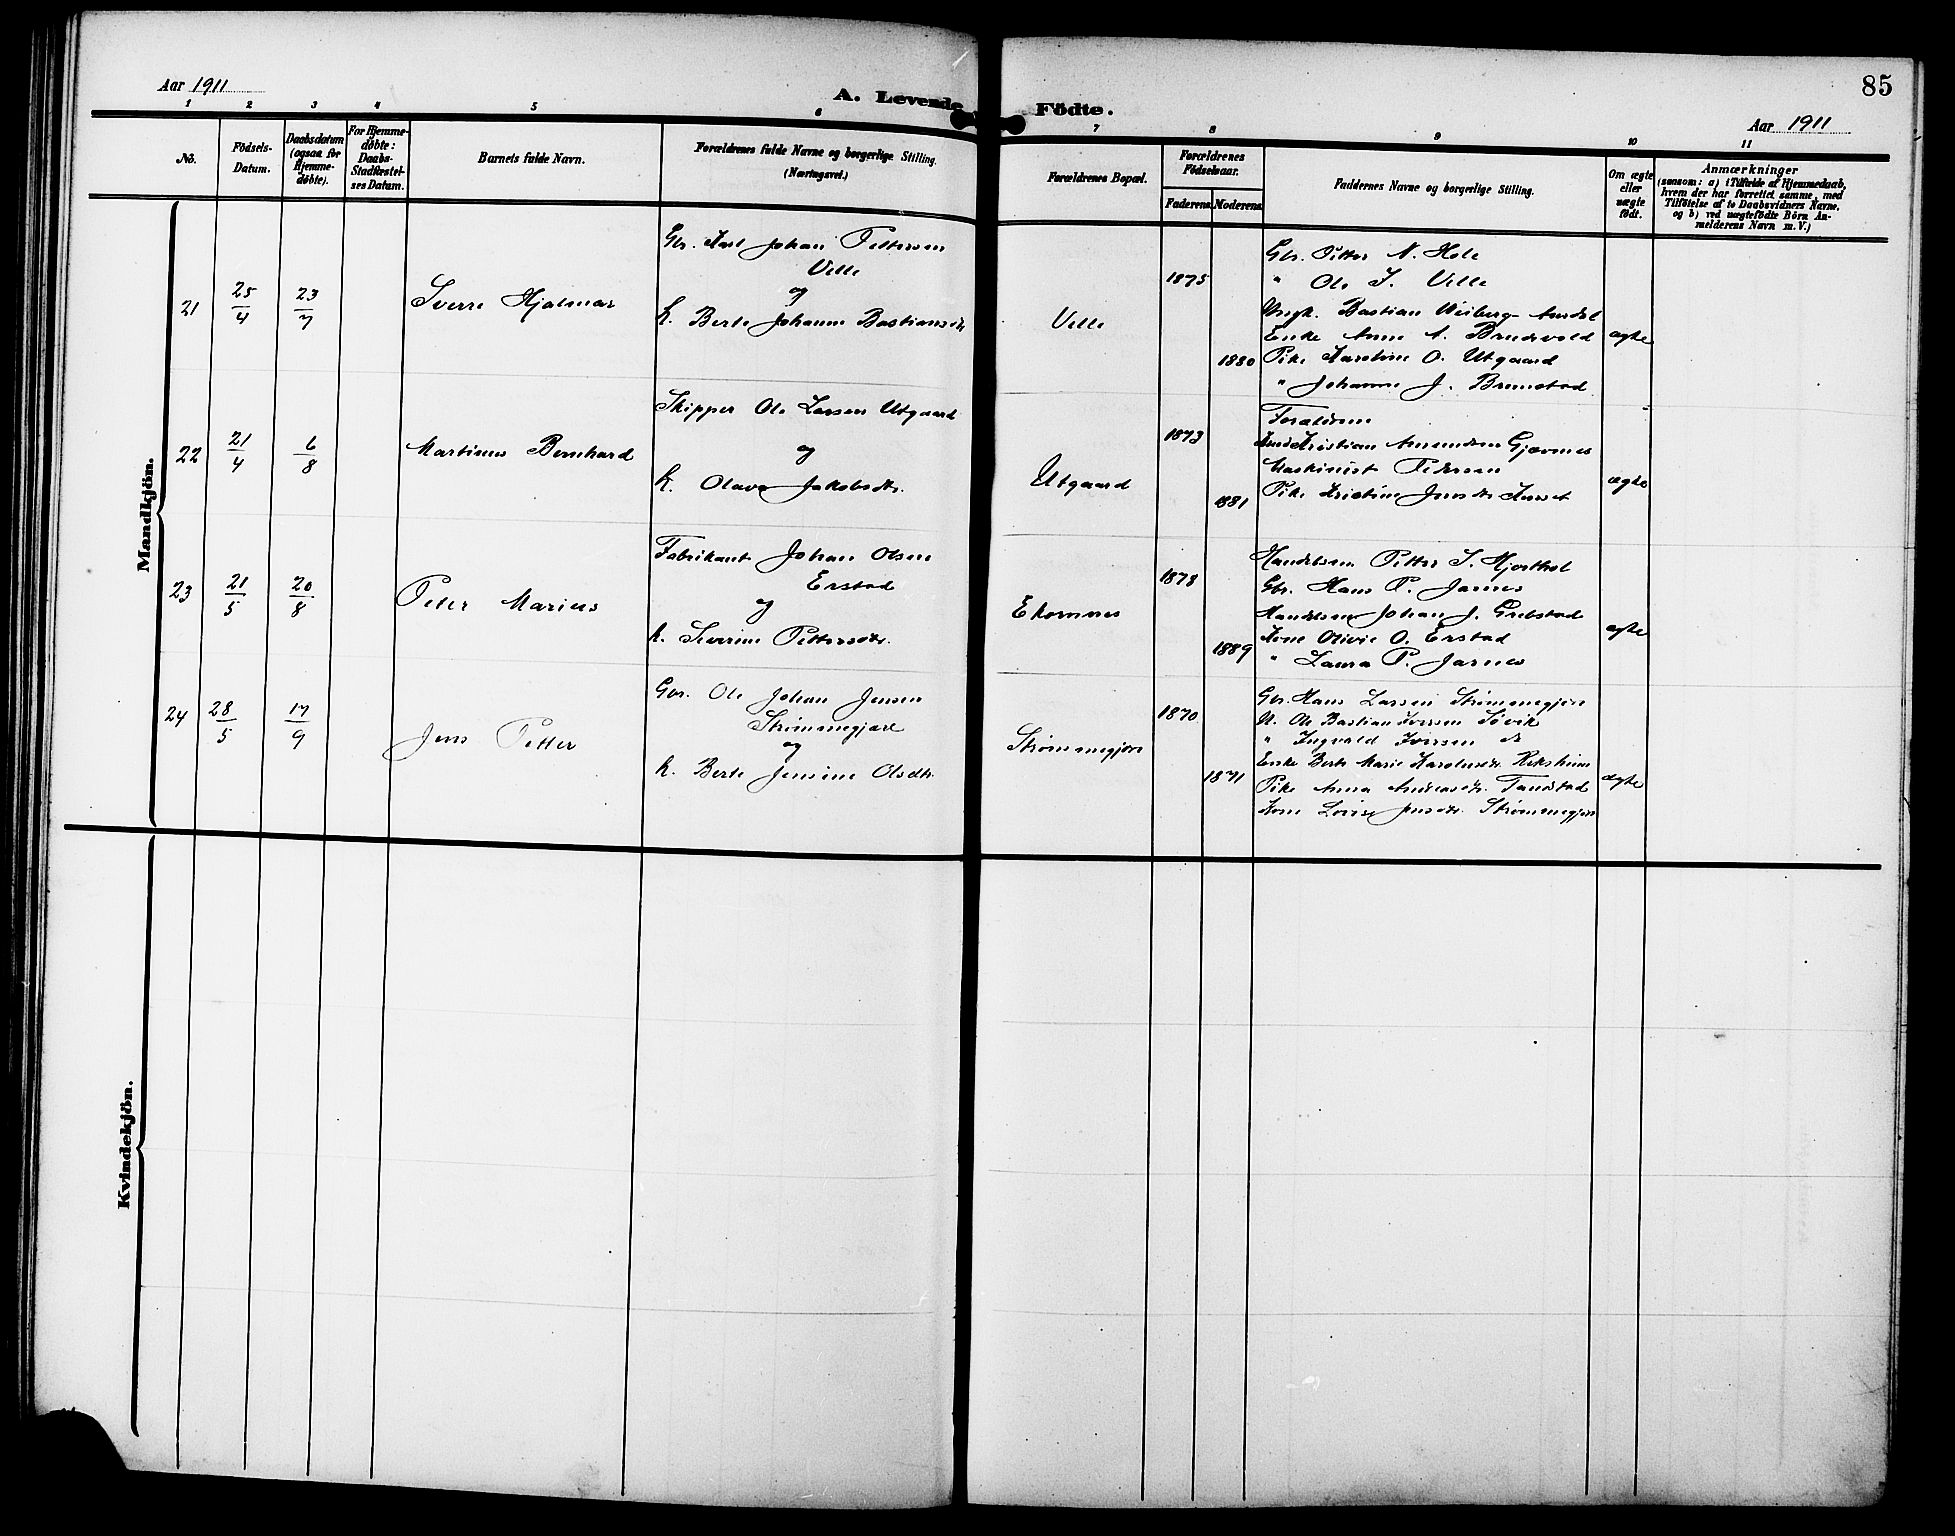 85
Aar 1911
A. Levende Födte.
Aar 1911
1 2 3 4 5 6 7 8 9 10 11
No.
Födsels-
Datum.
Daabsdatum
(ogsaa for
Hjemme-
døbte).
For Hjemme-
døbte:
Daabs-
Stadfæstel-
ses Datum.
Barnets fulde Navn.
Forældrenes fulde Navne og borgerlige Stilling.
(Næringsvei.)
Forældrenes Bopæl.
Forældrenes
Födselsaar.
Faderens.
Moderens.
Faddernes Navne og borgerlige Stilling.
Om ægte
eller
uægte
födt.
Anmærkninger
(saasom: a) i Tilfælde af Hjemmedaab,
hvem der har forrettet samme, med
Tilföielse af to Daabsvidners Navne,
og b) ved uægtefödte Börn An-
melderens Navn m. V.)
Mandkjön.
21
25/4
23/7
Sverre Hjalmar
Gbr. Karl Johan Pettersen
Velle
og
h. Berte Johanne Bastiansdtr
Velle
1875
1880
Gbr. Petter N. Hole
" Ole J. Velle
Ungk. Bastian Weiberg-
Enke Anne A. Brudevold
Pike Karoline O. Utgaard
" Johanne J. Brunstad
ægte
22
21/4
6/8
Martinus Bernhard
Skipper Ole Larsen Utgaard
og
h. Olava Jakobsdtr.
Utgaard
1873
1881
Forældrene
Kristian Amundsen Gjævnes
Maskinist Pedersen
Pike Kristine Jensdtr
ægte
23
21/5
20/8
Peter Marius
Fabrikant Johan Olsen
Erstad
og
h. Severine Pettersdtr.
Ekornnes
1878
1889
Handelsm. Petter S. Hjorthol
Gbr. Hans P. Jarnes
Handelsm. Johan J. Grebstad
Kone Olivie O. Erstad
" Laura P. Jarnes
ægte
24
28/5
17/9
Jens Petter
Gbr. Ole Johan Jensen
Strømmegjære
og
h. Berte Jensine Olsdtr.
Strømmegjære
1870
1871
Gbr. Hans Larsen Strømmegjære
U. Ole Bastian Iversen Søvik
" Ingvald Iversen ds
Enke Berte Marie Karolusdtr. Riksheim
Pike Anna Andreasdtr. Tandstad
Kone Lovise Jensdtr. Strømmegjære
ægte
Kvindekjön.